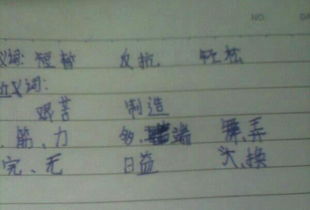 NO.
义词: 短暂 反抗 轻松
近义词:
艰苦 制造
筋、力 多、端 舞、弄
完、无 日益 大、换